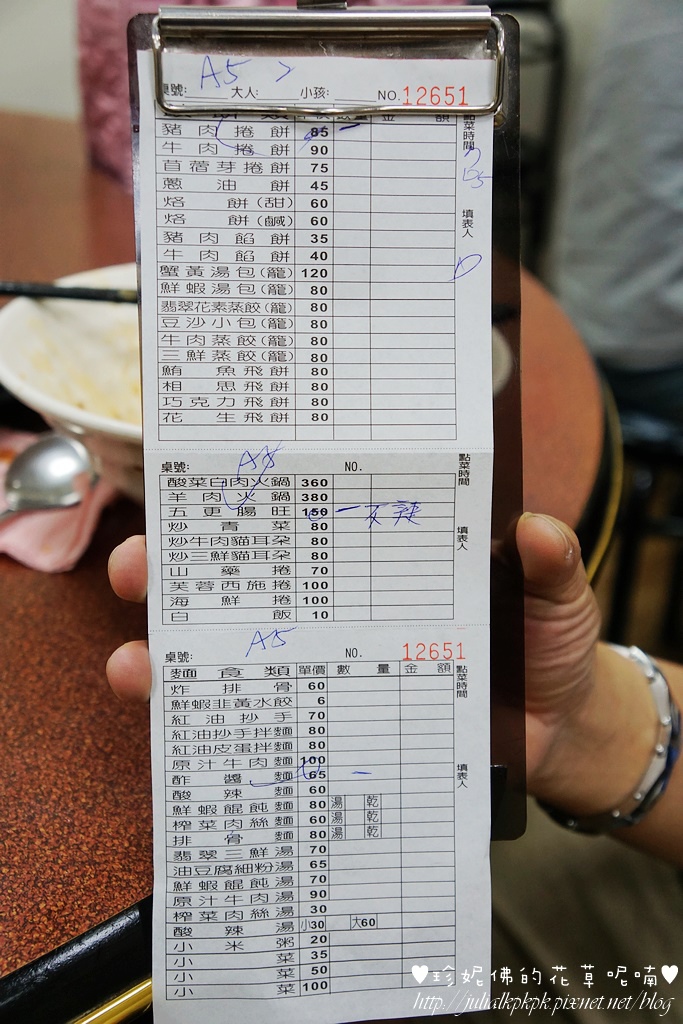 A5 2
桌號: 大人: 小孩: NO.12651
點菜時間
填表人
豬肉捲餅 85 一
牛肉捲餅 90
苜蓿芽捲餅 75
蔥油餅 45
烙餅(甜) 60
烙餅(鹹) 60
豬肉餡餅 35
牛肉餡餅 40
蟹黃湯包(籠) 120
鮮蝦湯包(籠) 80
翡翠花素蒸餃(籠) 80
豆沙小包(籠) 80
牛肉蒸餃(籠) 80
三鮮蒸餃(籠) 80
鮪魚飛餅 80
相思飛餅 80
巧克力飛餅 80
花生飛餅 80
A5
桌號: NO.
點菜時間
填表人
酸菜白肉火鍋 360
羊肉火鍋 380
五更腸旺 150 一不辣
炒青菜 80
炒牛肉貓耳朵 80
炒三鮮貓耳朵 80
山藥捲 70
芙蓉西施捲 100
海鮮捲 100
白飯 10
A5
桌號: NO. 12651
點菜時間
填表人
麵食類 單價 數量 金額
炸排骨 60
鮮蝦韭黃水餃 6
紅油抄手 70
紅油抄手拌麵 80
紅油皮蛋拌麵 80
原汁牛肉麵 100
酢醬麵 65 一
酸辣麵 60
鮮蝦餛飩麵 80 湯 乾
榨菜肉絲麵 60 湯 乾
排骨麵 80 湯 乾
翡翠三鮮湯 70
油豆腐細粉湯 65
鮮蝦餛飩湯 70
原汁牛肉湯 90
榨菜肉絲湯 30
酸辣湯 小30 大60
小米粥 20
小菜 35
小菜 50
小菜 100
♥珍妮佛的花草呢喃♥
http://julialkpkpk.pixnet.net/blog